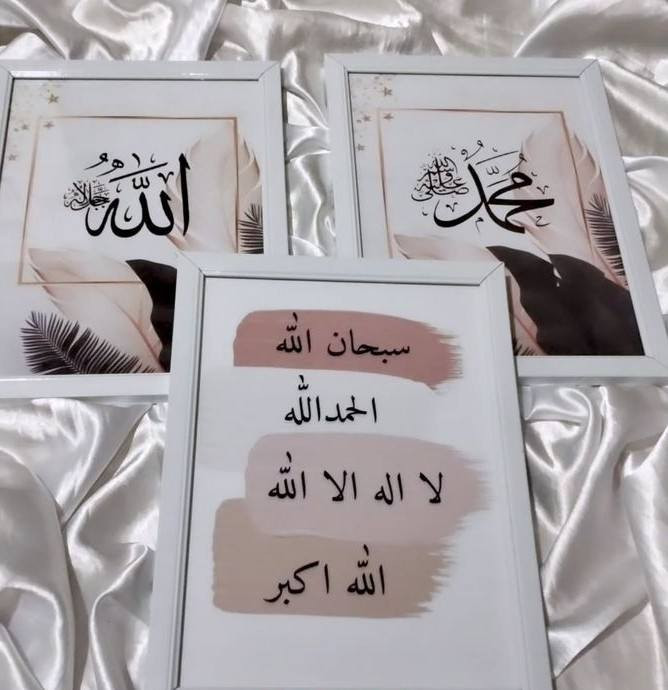 الله جل جلاله
محمد صلى الله عليه وسلم
سبحان الله
الحمدالله
لا اله الا الله
الله اكبر